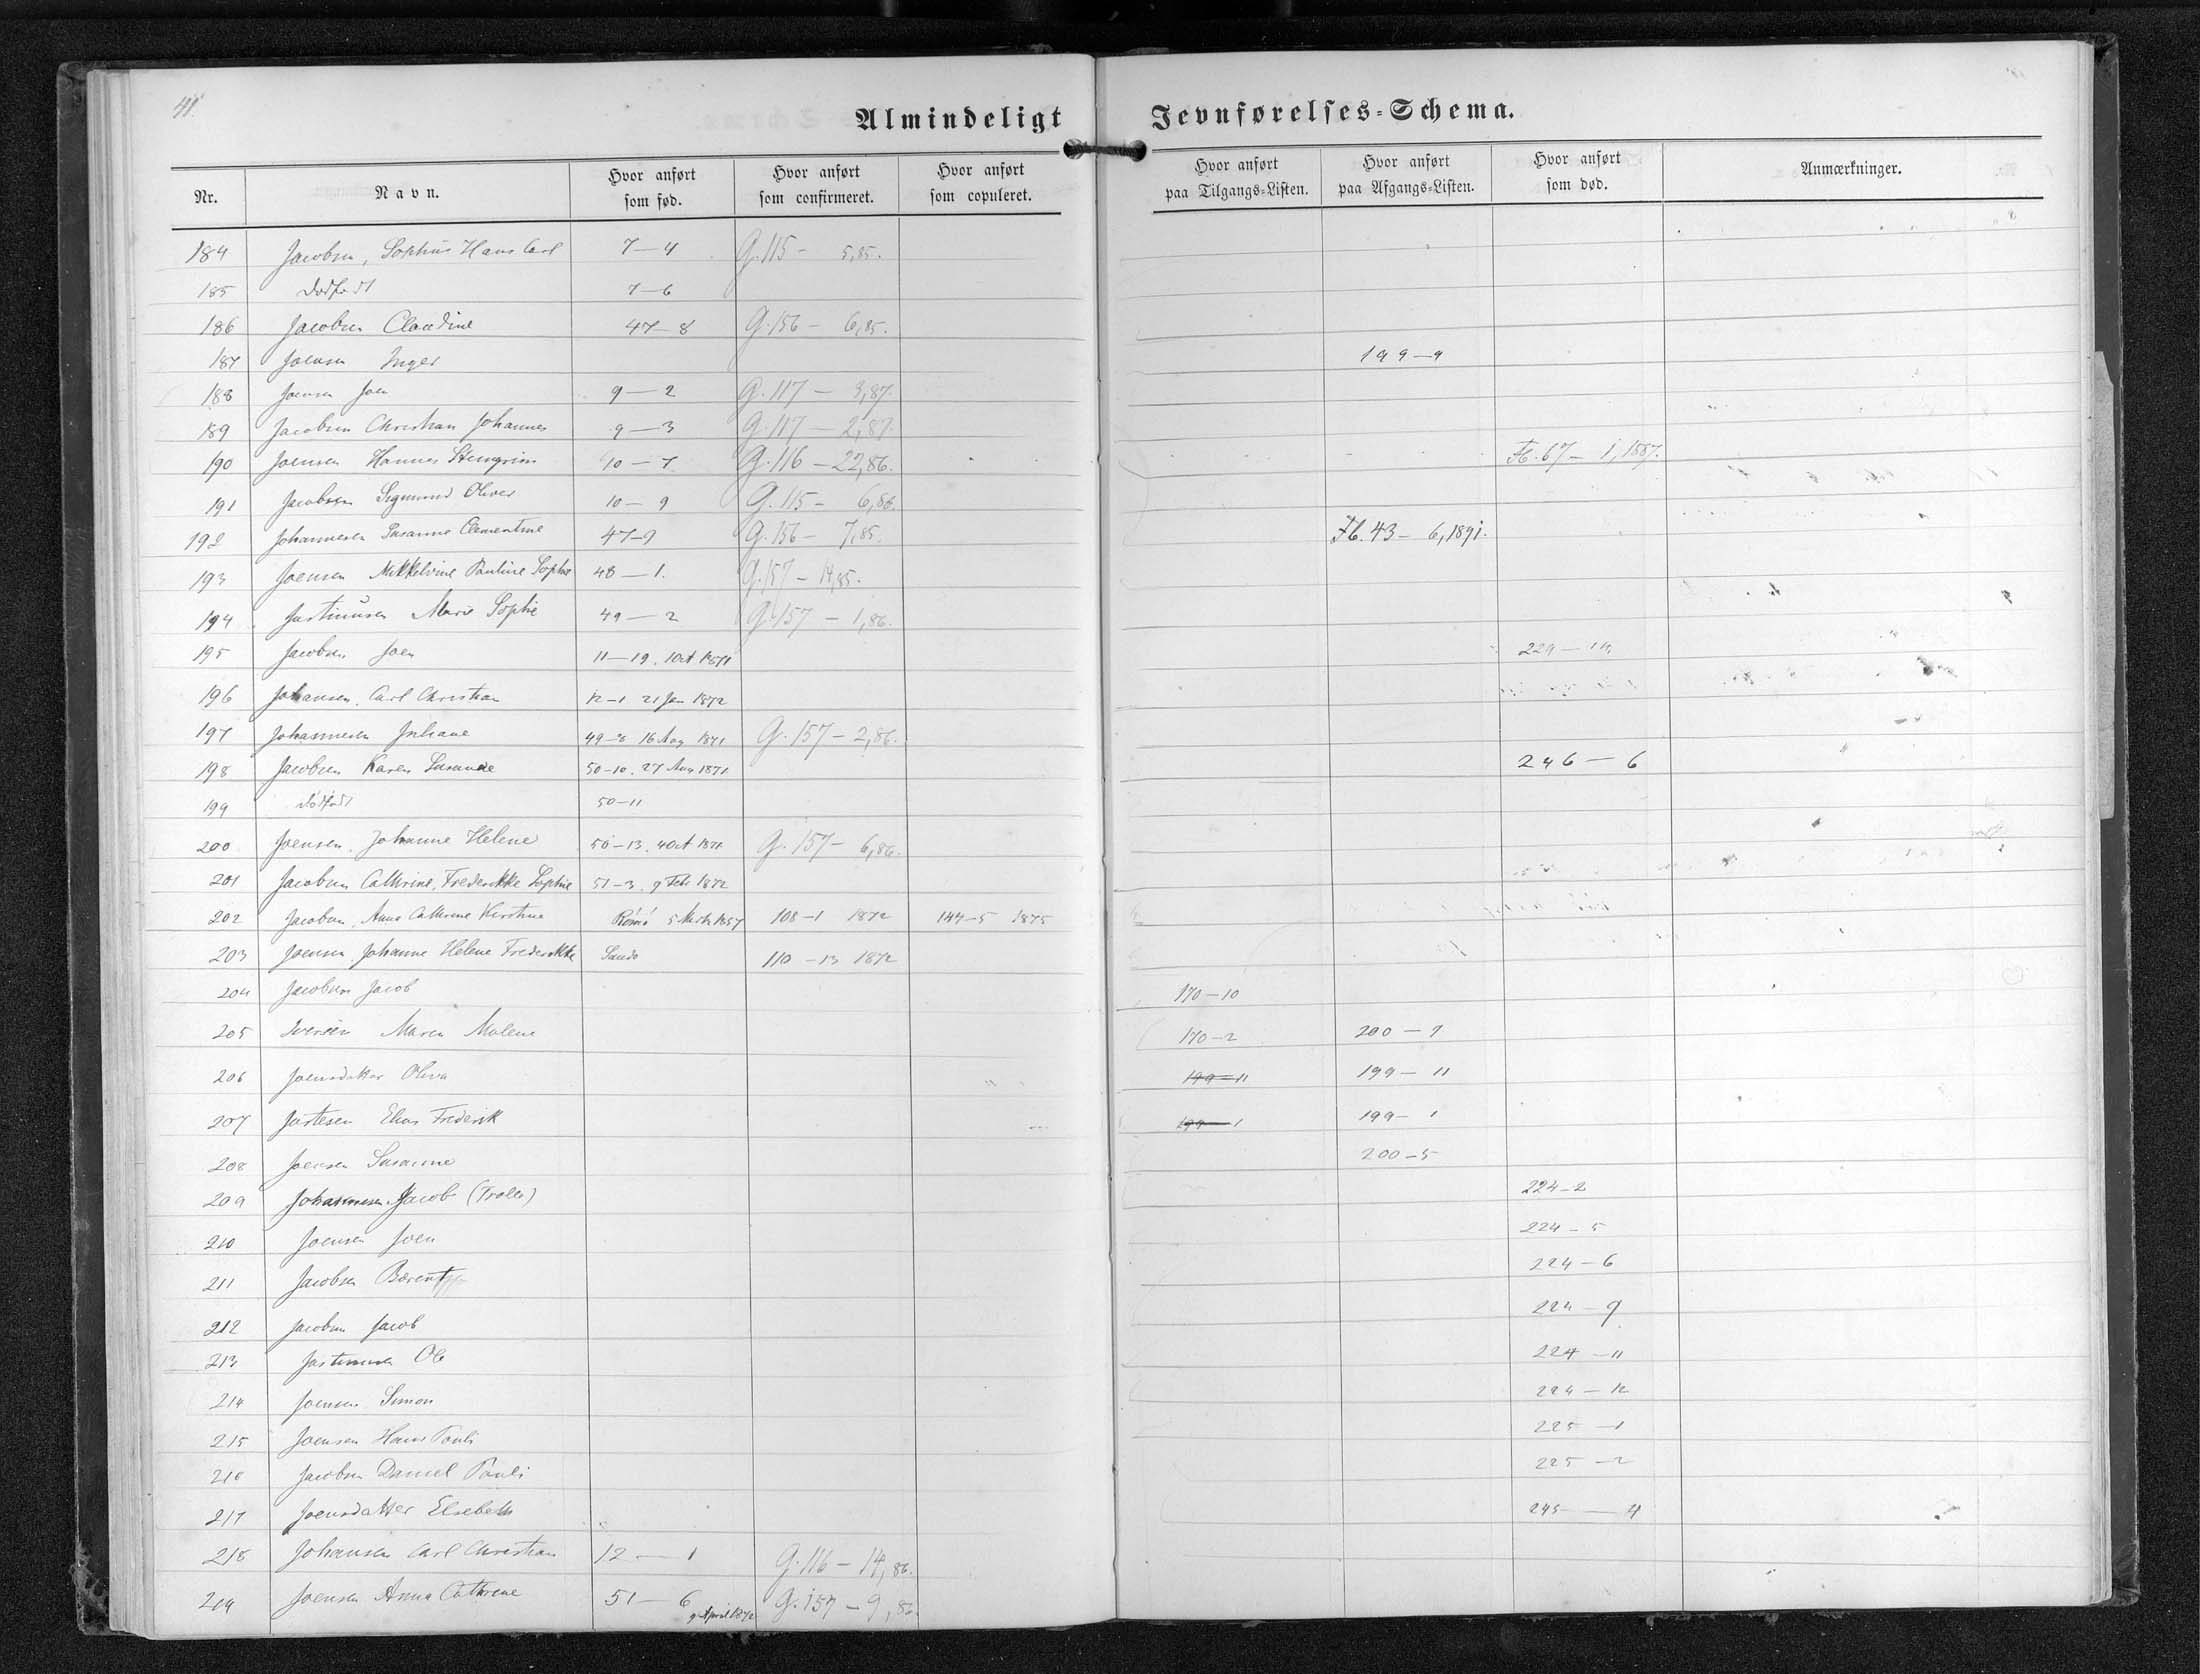 41
Almindeligt Jevnførelses=Schema.
Nr. Navn. Hvor anført som fød. Hvor anført som confirmeret. Hvor anført som copuleret. Hvor anført paa Tilgangs=Listen. Hvor anført paa Afgangs=Listen. Hvor anført som død. Anmærkninger.
184 Jacobsen, Sophus Hans Carl 7—4 G. 115 — 5,85.
185 Dødfødt 7—6
186 Jacobsen Claudine 47—8 G. 156 — 6,85.
187 Joensen Inger 199—9
188 Joensen Joen 9—2 G. 117 — 3,87.
189 Jacobsen Christian Johannes 9—3 G. 117 — 2,87.
190 Joensen Hannes Stengrim 10—7 G. 116 — 22,86. Fb. 67 — 1, 1887.
191 Jacobsen Sigmund Oliver 10—9 G. 115 — 6,86.
192 Johannesen Susanne Clementine 47—9 G. 156 — 7,85. Fb. 43 — 6, 1891.
193 Joensen Mikkelvine Pauline Sophie 48—1. G. 157 — 14,85.
194 Justinusen Marie Sophie 49—2 G. 157 — 1,86.
195 Jacobsen Joen 11—19. 10ct 1871 229—14
196 Johansen, Carl Christian 12—1 21 Jan 1872
197 Johannesen Juliane 49—8 16 Aug 1871 G. 157 — 2,86.
198 Jacobsen Karen Susanne 50—10. 27 Aug 1871 246—6
199 dødfødt 50—11
200 Joensen, Johanne Helene 50—13. 4 Oct 1871 G. 157 — 6,86.
201 Jacobsen Cathrine, Frederikke Sophie 51—3. 9 Feb 1872
202 Jacobsen, Anna Cathrine Kirstine 5 Marts 1857 108—1 1872 144—5 1875
203 Joensen, Johanne Helene Frederikke Sandø 110—13 1872
204 Jacobsen Jacob 170—10
205 Iversen Maren Malene 170—2 200—7
206 Joensdatter Oliva 199—11 199—11
207 Justesen Elias Frederik 199—1 199—1
208 Joensen Susanne 200—5
209 Johannesen, Jacob (Trolle) 224—2
210 Joensen Joen 224—5
211 Jacobsen Bærent 224—6
212 Jacobsen Jacob 224—9
213 Justinusen Ole 224—11
214 Joensen Simon 224—12
215 Joensen Hans Pauli 225—1
216 Jacobsen Daniel Pauli 225—2
217 Joensdatter Elsebeth 245—4
218 Johansen Carl Christian 12—1 G. 116 — 14,86.
219 Joensen Anna Cathrine 51—6 9 April 1872 G. 157 — 9,86.